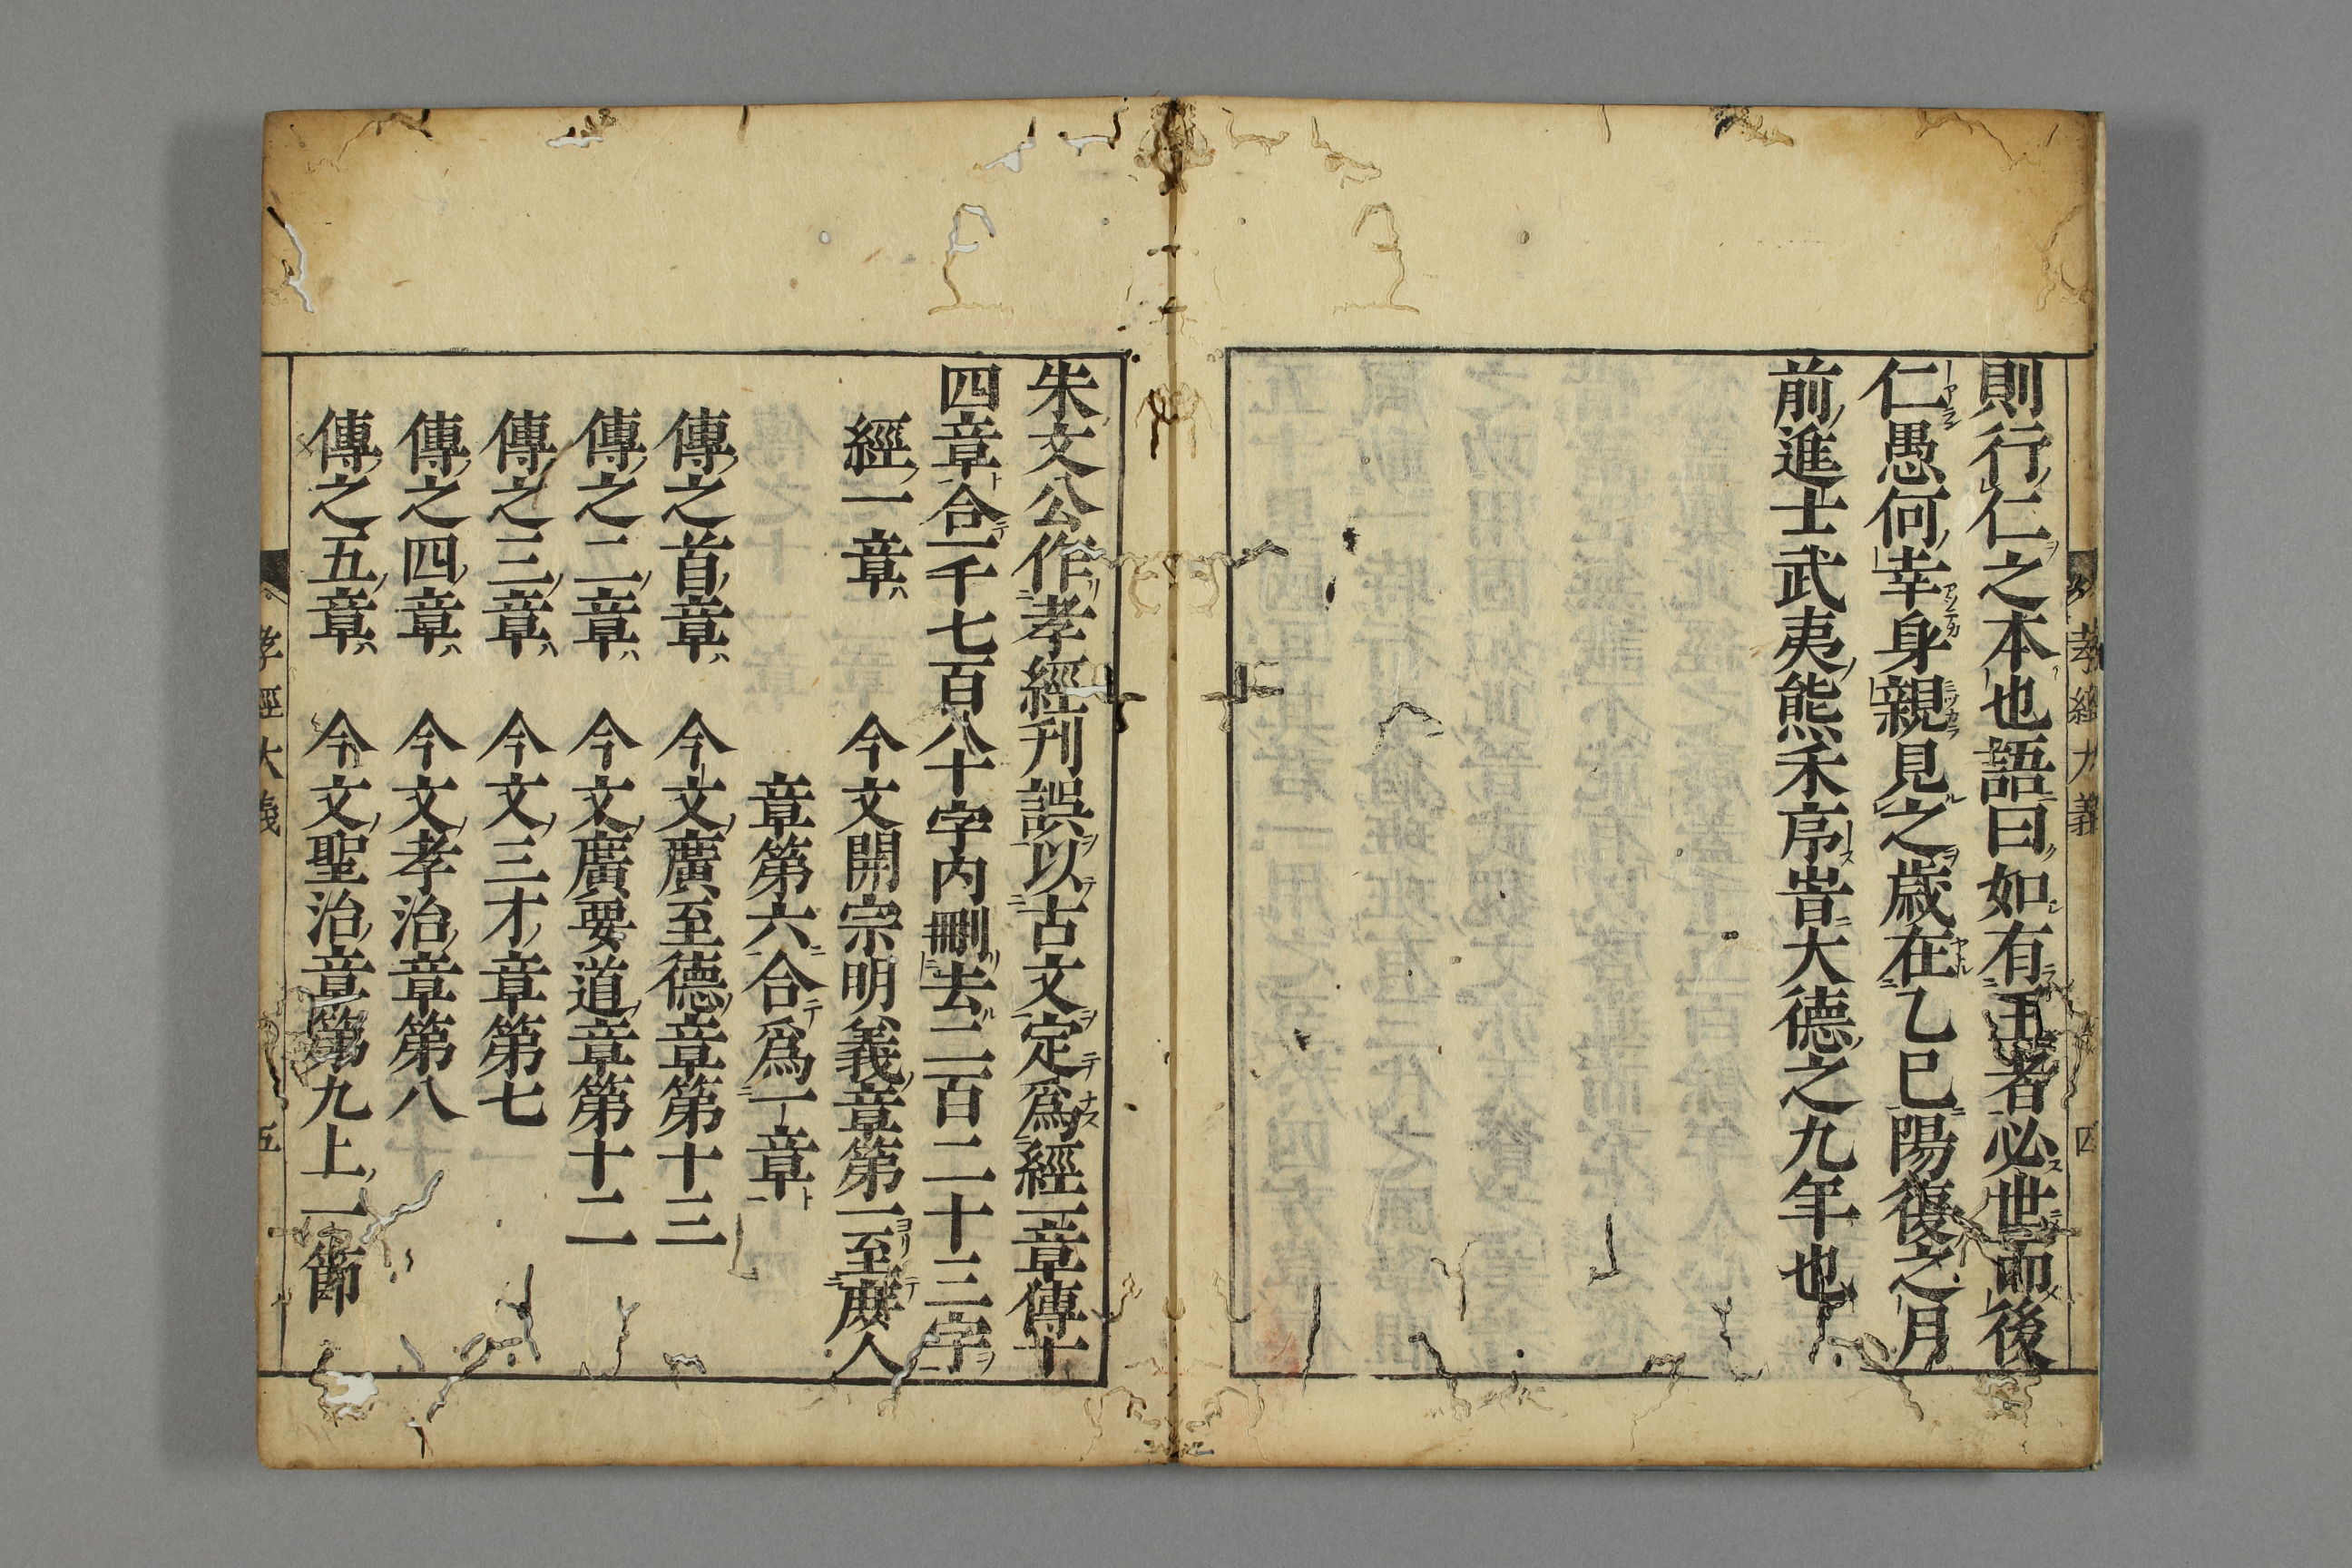 則行仁之本也語曰如有王者必世而後
仁愚何幸身親見之歳在乙巳陽復之月
前進士武夷熊禾序旹大德之九年也
孝經大義 四
朱文公作孝經刊誤以古文定爲經一章傳十
四章合一千七百八十字内刪去二百二十三字
經一章 今文開宗明義章第一至庶人
章第六合爲一章
傳之首章 今文廣至德章第十三
傳之二章 今文廣要道章第十二
傳之三章 今文三才章第七
傳之四章 今文孝治章第八
傳之五章 今文聖治章第九上一節
孝經大義 五